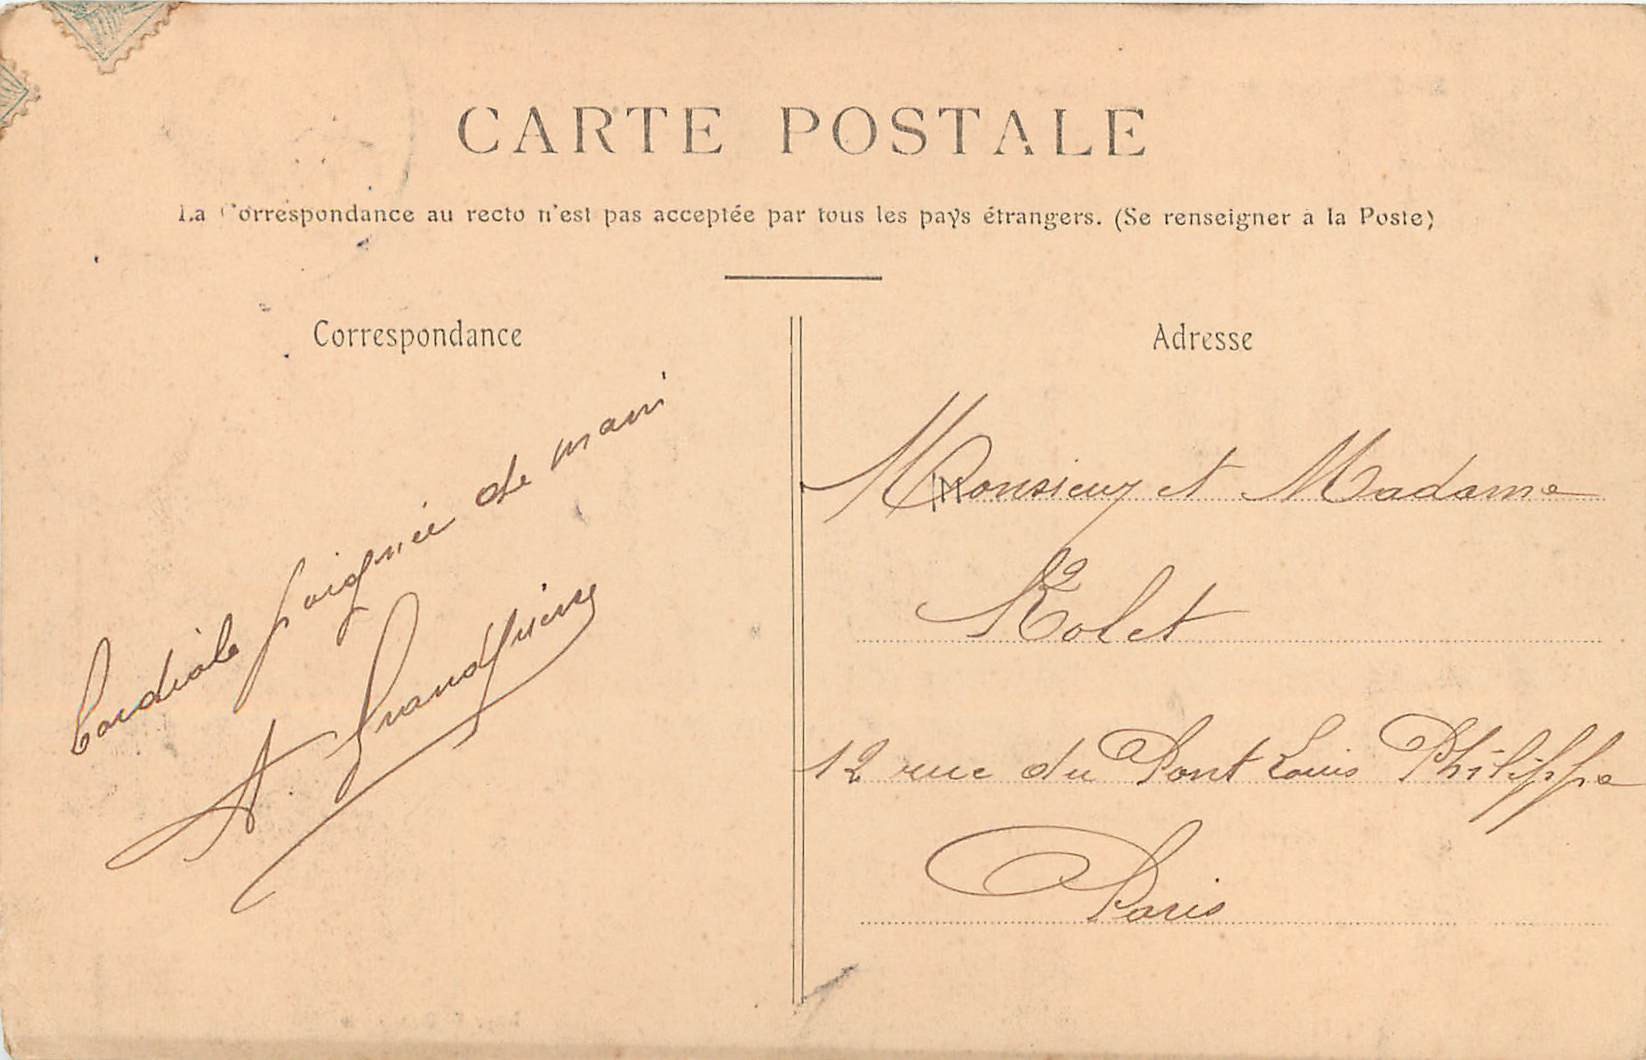 CARTE POSTALE
La Correspondance au recto n'est pas acceptée par tous les pays étrangers. (Se renseigner à la Poste)
Correspondance
Cordiale poignée de main
A. Grandpierre
Adresse
Monsieur et Madame
Rolet
12 rue du Pont Louis Philippe
Paris